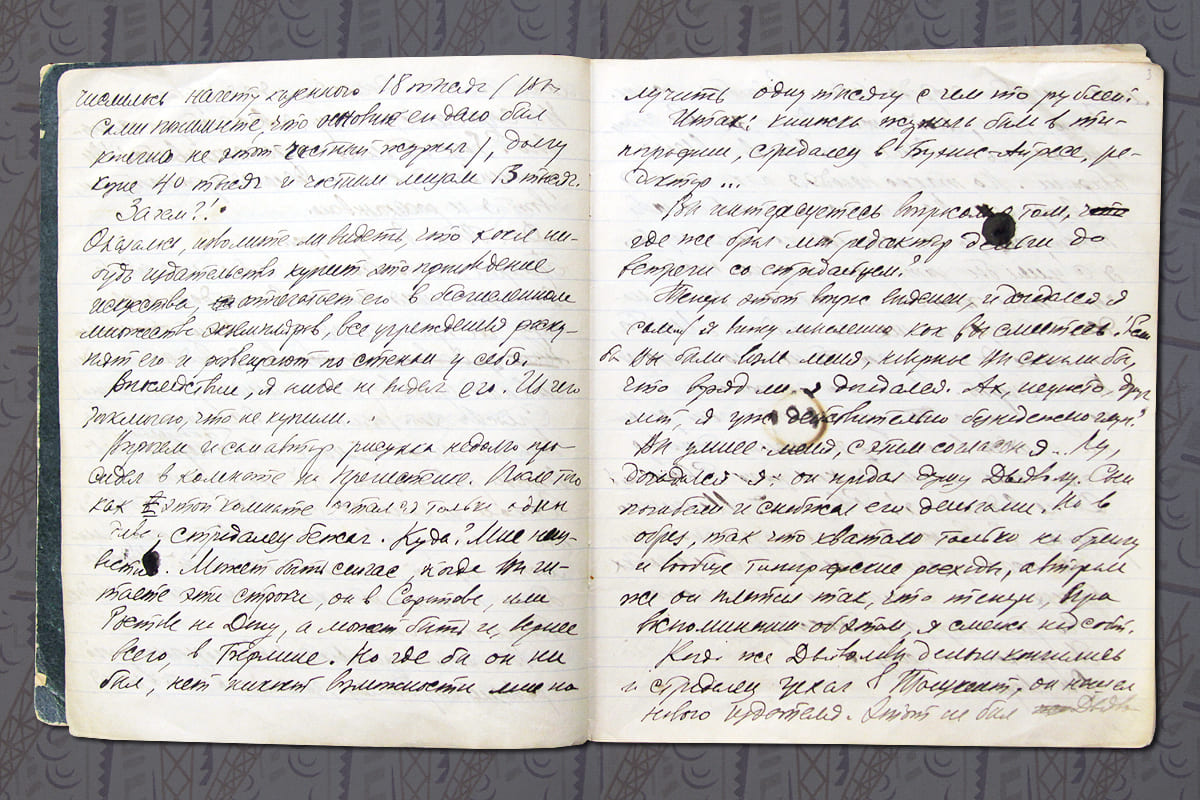 числилось начету казенного 18 тысяч (
сами понимаете, что основою ей дало был
конечно не этот частный журнал), долгу
40 тысяч и частным лицам 13 тысяч.
Зачем?!
Оказалось, изволите ли видеть, что какое ни-
будь издательство купит это произведение
искусства, отпечатает его в бесчисленном
множестве экземпляров, все учреждения раску-
пят его и развешают по стенам у себя.
Впоследствии, я нигде не видел его. Из чего
заключаю, что не купили.
Впрочем и сам автор рисунка недолго про-
сидел в комнате на Пречистенке. После того
как в этой комнате остался только один
страдалец бежал. Куда? Мне неиз-
вестно. Может быть сейчас, когда Вы чи-
таете эти строки, он в Саратове, или
Ростове на Дону, а может быть и, вернее
всего, в Берлине. Но где бы он ни
был, нет никакой возможности мне по
лучить одну тысячу с чем то рублей.
Итак: книжка журнала был в ти-
пографии, страдалец в Буэнос-Айресе, ре-
дактор...
Вы интересуетесь вопросом о том,
где же брал мой редактор деньги до
встречи со страдальцем?
Теперь этот вопрос выяснен, и догадался я
сам (я вижу мысленно как Вы смеетесь! Если
бы Вы были возле меня, наверное Вы сказали бы,
что вряд ли я догадался. Ах, неужто, друг
мой, я уж действительно так глуп?
Вы умнее меня, с этим согласен я... Ну,
догадался я: он продал душу Дьяволу. Сын
погибели и снабжал его деньгами. Но в
обрез, так что хватало только на бумагу
и вообще типографские расходы, авторам
же он платил так, что теперь,
вспоминаю об этом, я смеюсь над собой.
Когда же Дьяволовы деньги кончились
и страдалец уехал в Ташкент, он нашел
нового издателя. Этот не был Дьяво-